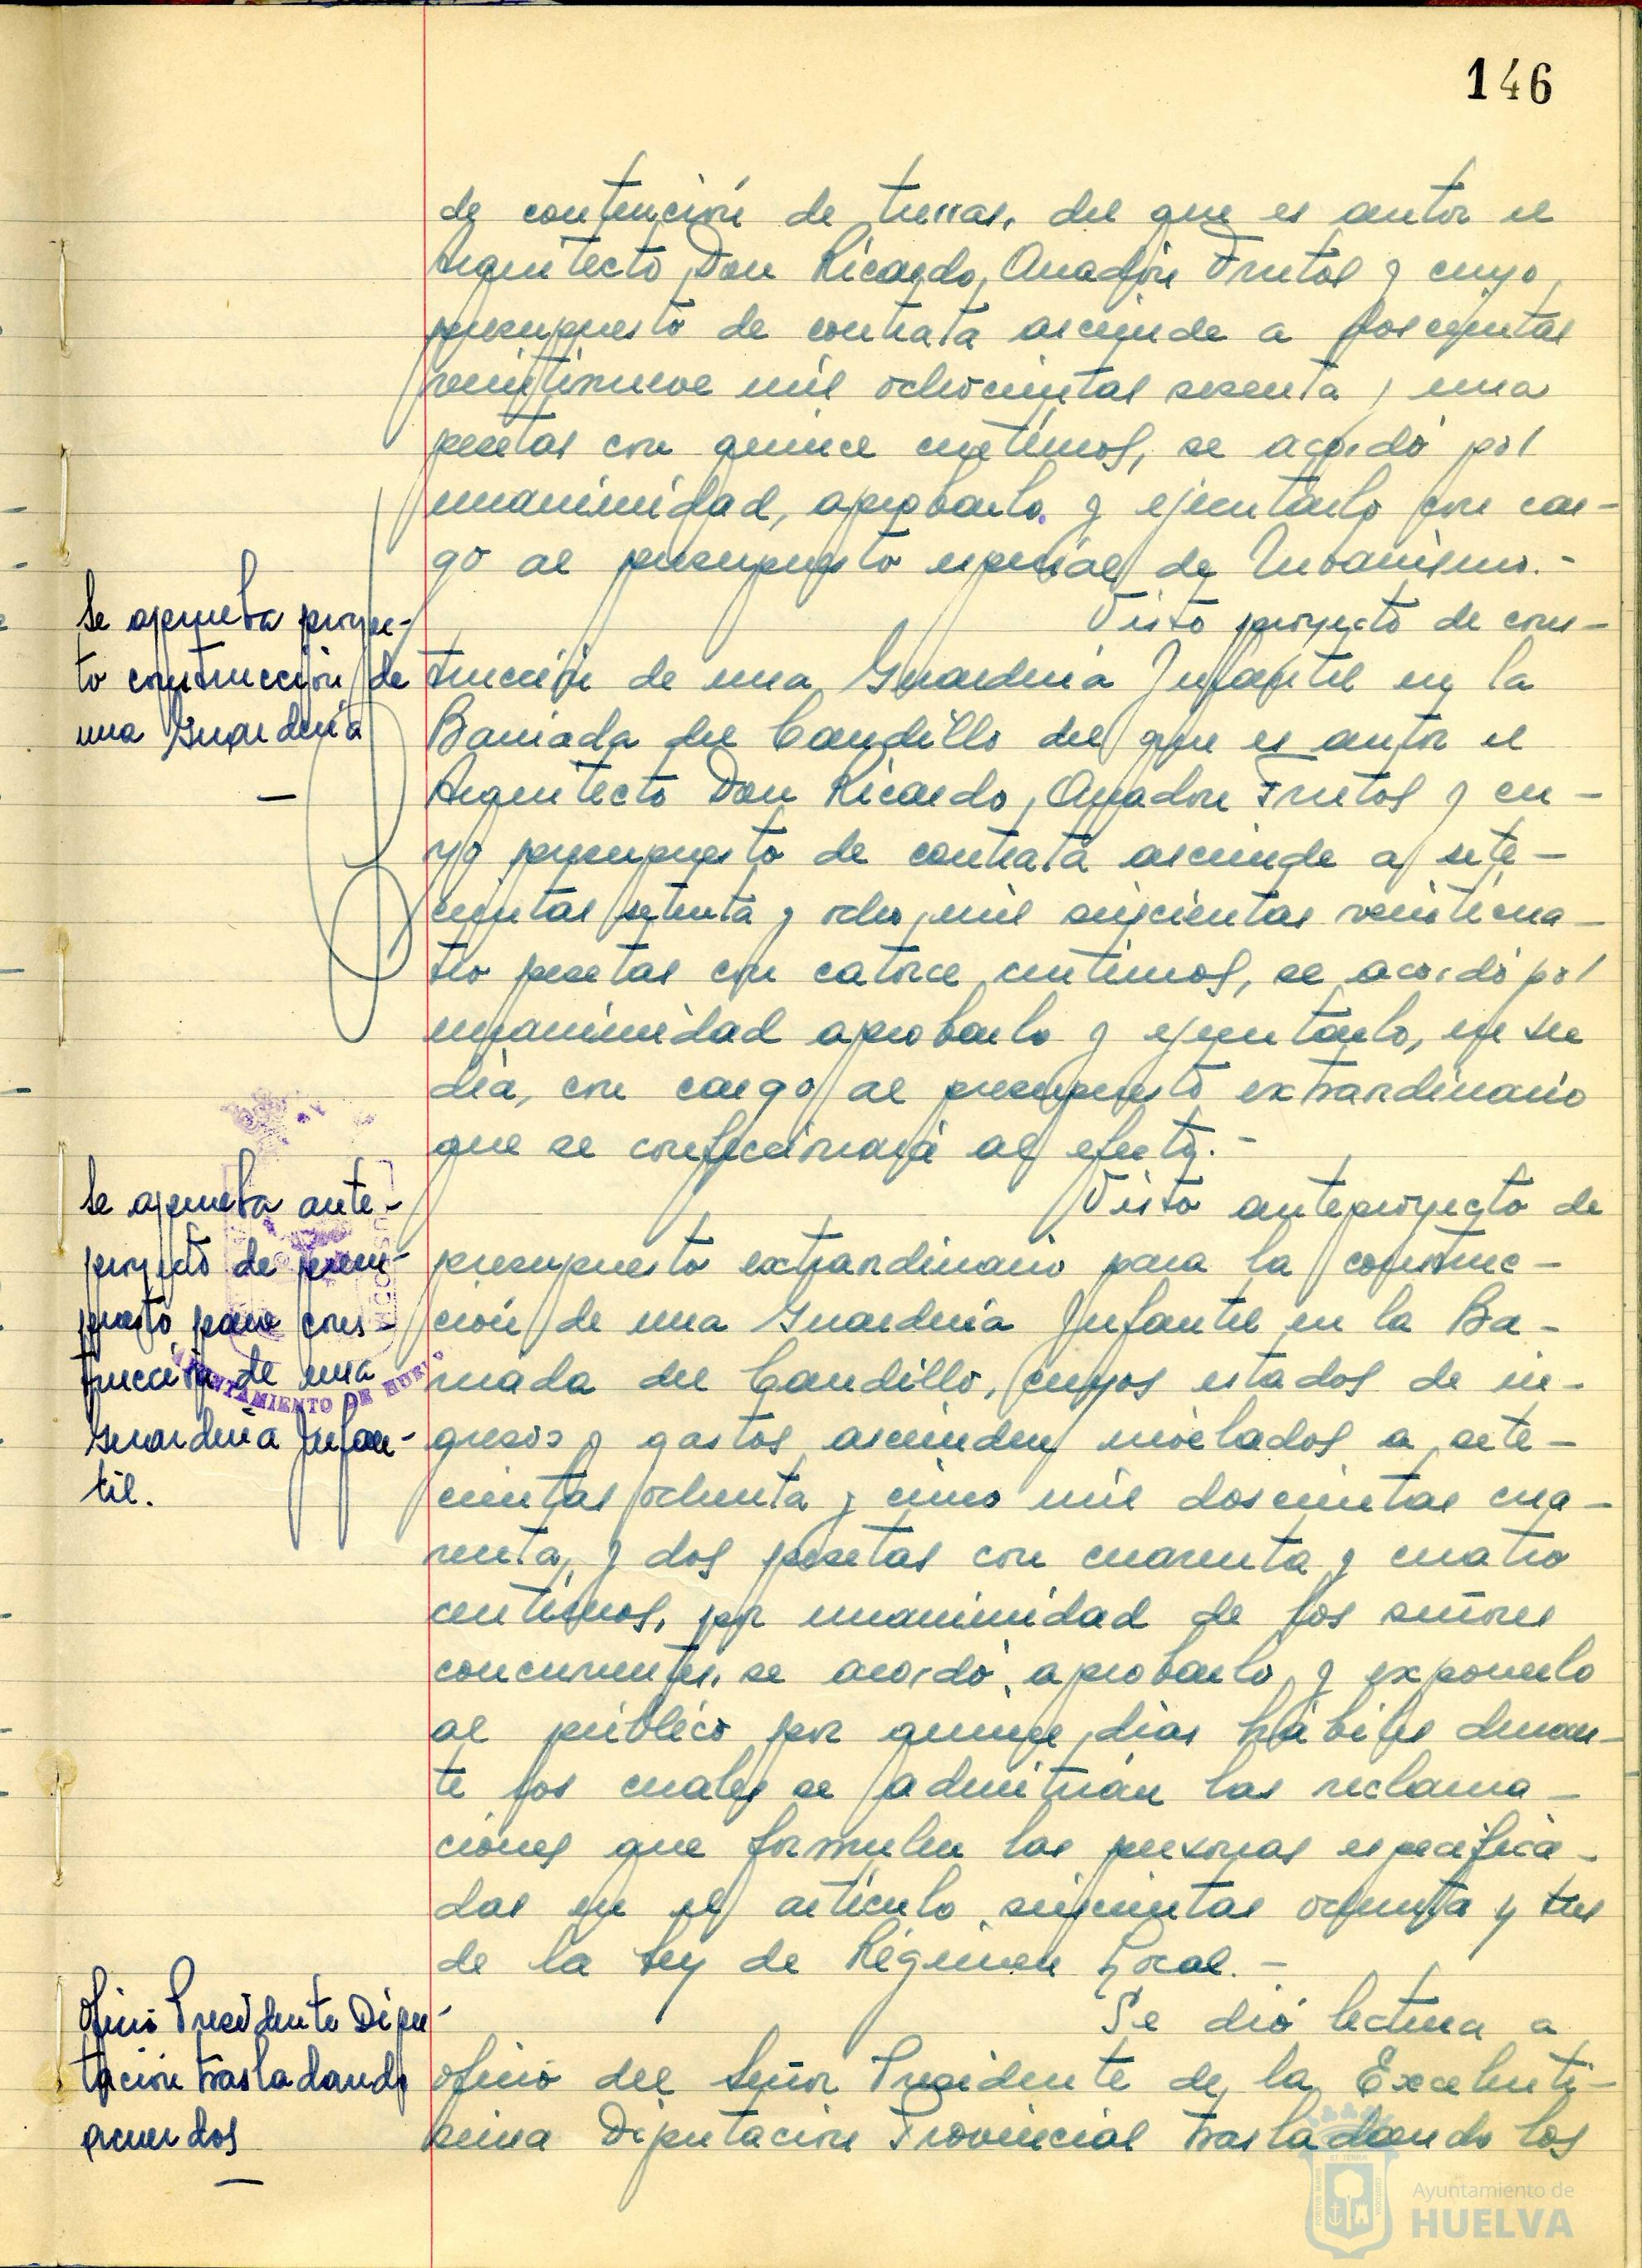 146
de contención de tierras, del que es autor el
Arquitecto Don Ricardo Anadón Frutos y cuyo
presupuesto de contrata asciende a doscientas
veintinueve mil ochocientas sesenta y una
pesetas con quince céntimos, se acordó por
unanimidad, aprobarlo y ejecutarlo con car-
go al presupuesto especial de Urbanismo.-
Se aprueba proyec-
to construcción de
una Guardería
Visto proyecto de cons-
trucción de una Guardería Infantil en la
Barriada del Caudillo del que es autor el
Arquitecto Don Ricardo Anadón Frutos y cu-
yo presupuesto de contrata asciende a sete-
cientas setenta y ocho mil seiscientas veinticua-
tro pesetas con catorce céntimos, se acordó por
unanimidad aprobarlo y ejecutarlo, en su
día, con cargo al presupuesto extraordinario
que se confeccionará al efecto.-
Se aprueba ante-
proyecto de presu-
puesto para cons-
trucción de una
Guardería Infan-
til.
AYUNTAMIENTO DE HUELVA
Visto anteproyecto de
presupuesto extraordinario para la construc-
ción de una Guardería Infantil en la Ba-
rriada del Caudillo, cuyos estados de in-
gresos y gastos ascienden nivelados a sete-
cientas ochenta y cinco mil doscientas cua-
renta y dos pesetas con cuarenta y cuatro
céntimos, por unanimidad de los señores
concurrentes, se acordó aprobarlo y exponerlo
al público por quince días hábiles duran-
te los cuales se admitirán las reclama-
ciones que formulen las personas especifica-
das en el artículo seiscientas ochenta y tres
de la Ley de Régimen Local.-
Oficio Presidente Dipu-
tación trasladando
acuerdos
Se dió lectura a
oficio del Señor Presidente de la Excelentí-
sima Diputación Provincial trasladando los
Ayuntamiento de
HUELVA